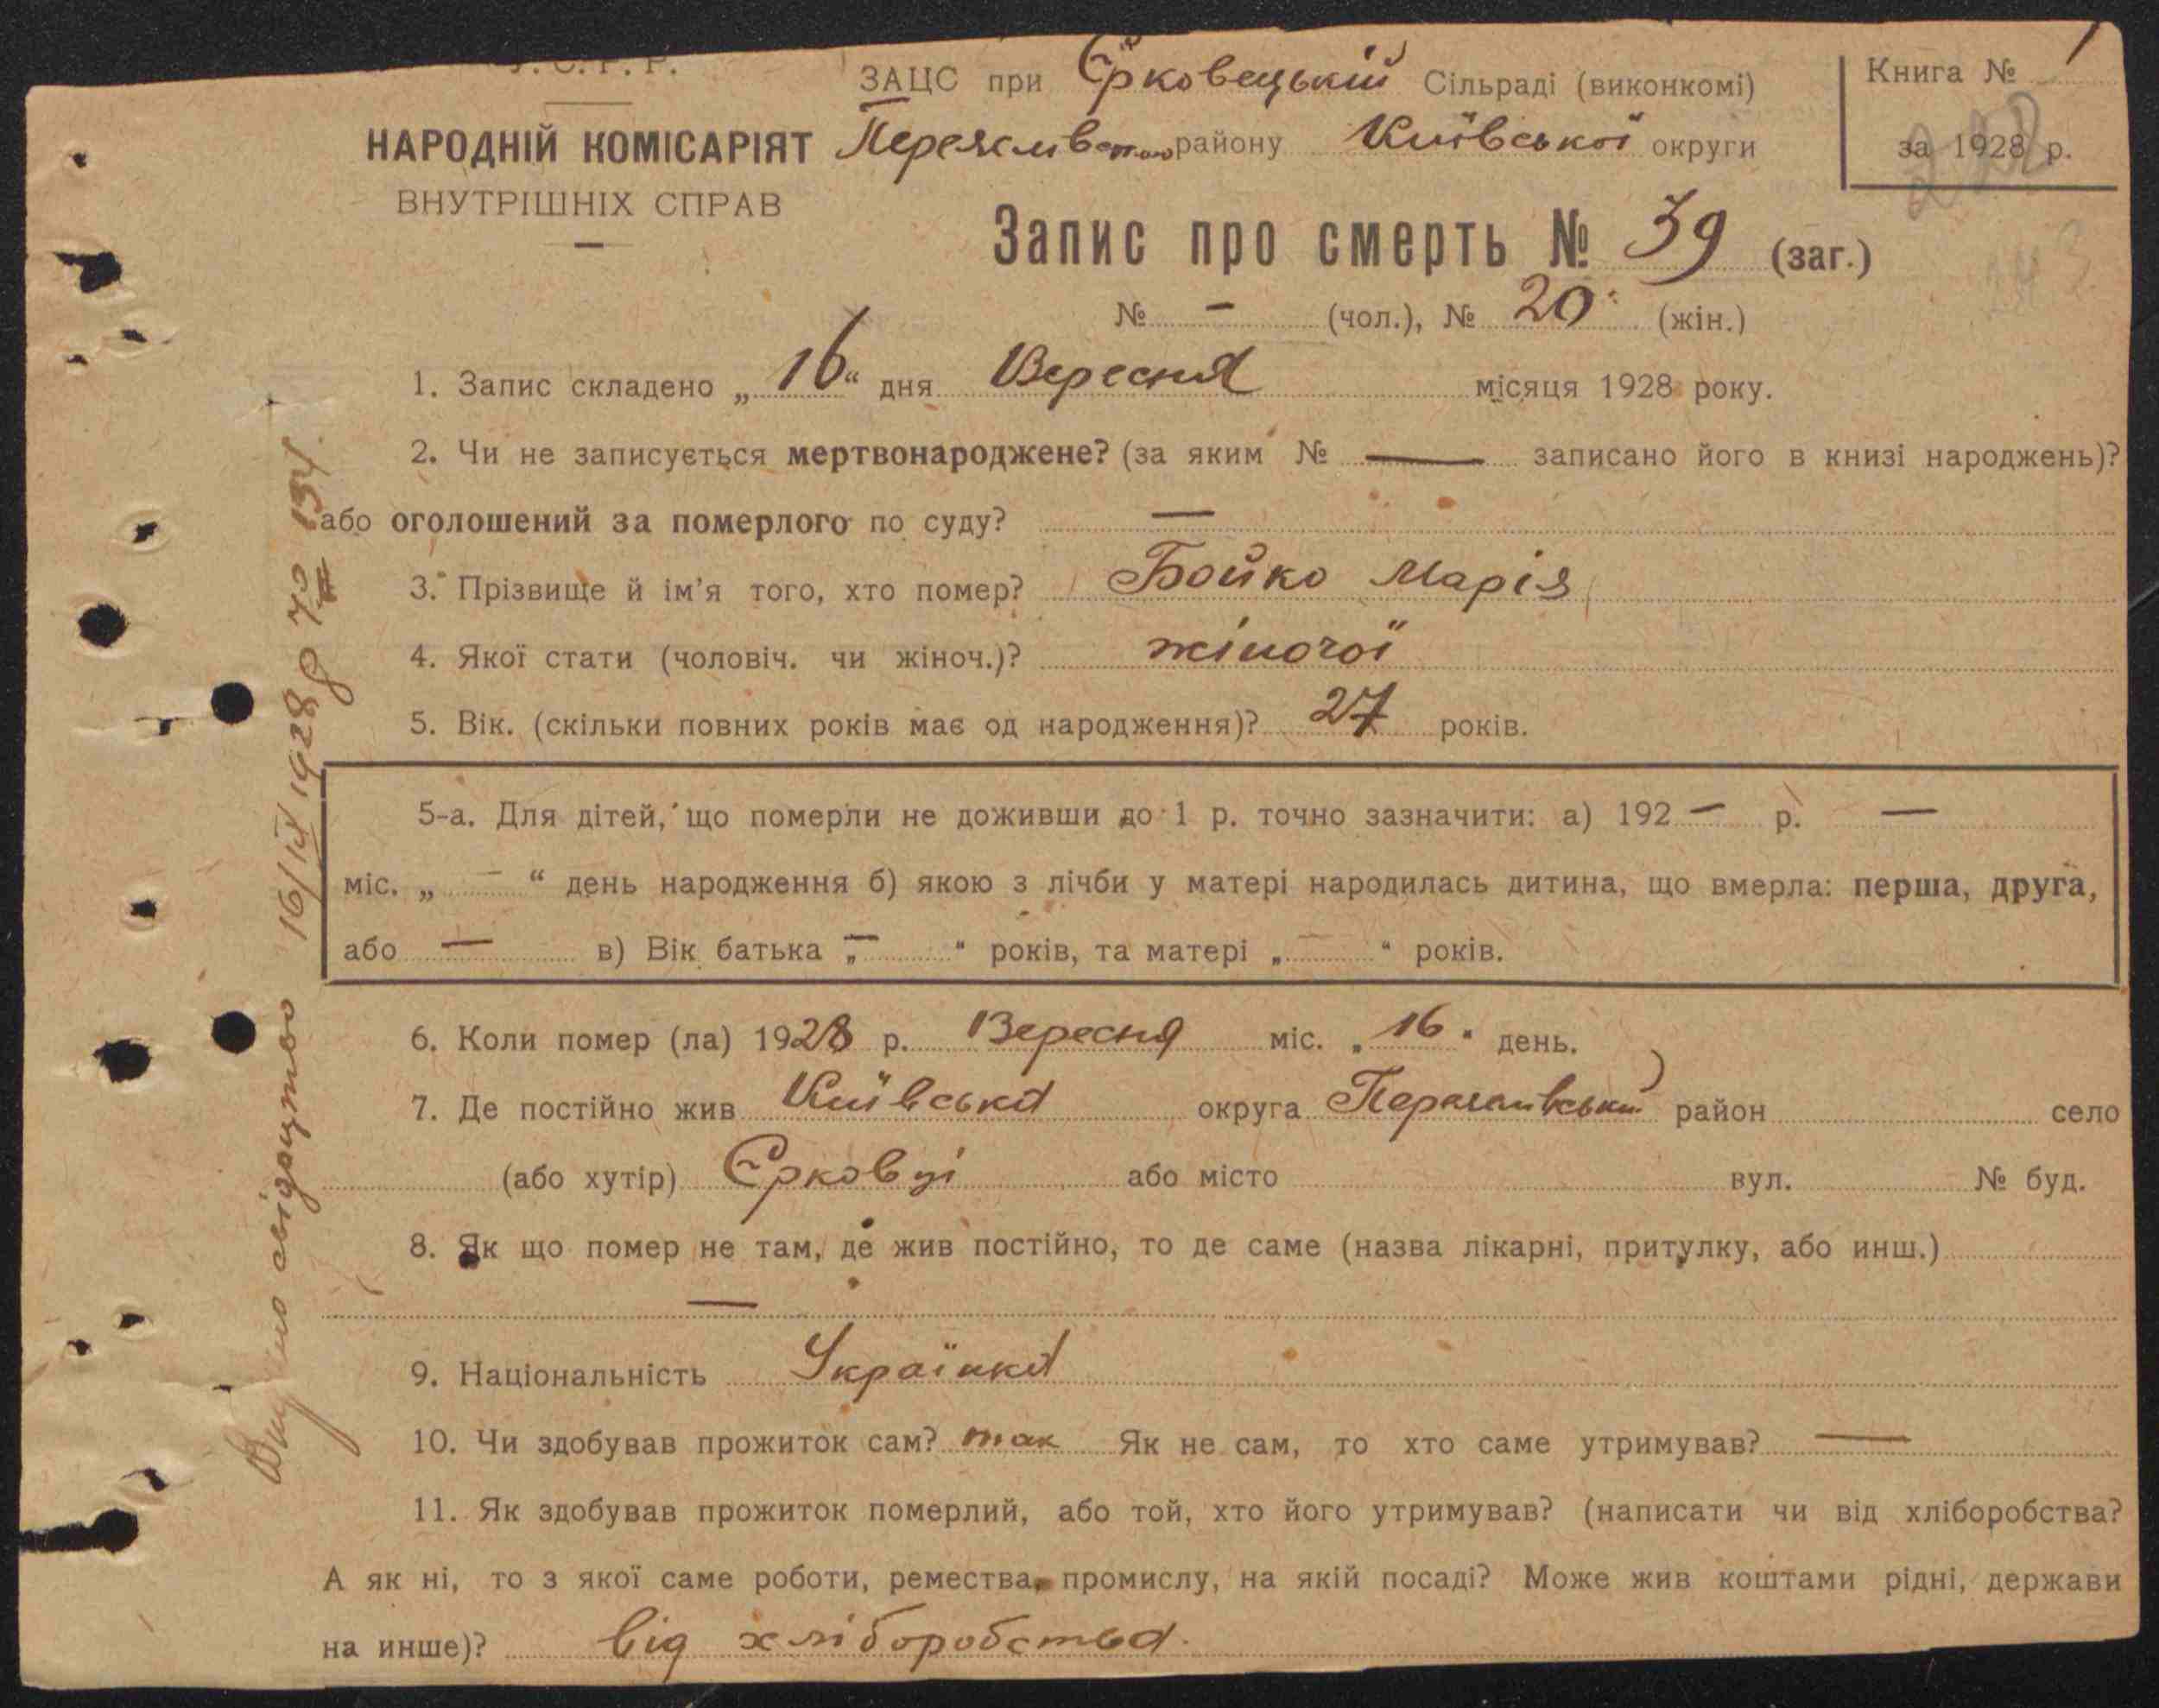 У. С. Р. Р.
НАРОДНІЙ КОМІСАРІЯТ
ВНУТРІШНІХ СПРАВ
ЗАЦС при Єрковецькій Сільраді (виконкомі)
району Київської округи
Книга № 1
за 1928 р.
Запис про смерть № 39 (заг.)
№ — (чол.), № 20 (жін.)
1. Запис складено „16“ дня Вересня місяця 1928 року.
2. Чи не записується мертвонароджене? (за яким № — записано його в книзі народжень)?
або оголошений за померлого по суду? —
3. Прізвище й ім'я того, хто помер? Бойко Марія
4. Якої стати (чоловіч. чи жіноч.)? жіночої
5. Вік. (скільки повних років має од народження)? 27 років.
5-а. Для дітей, що померли не доживши до 1 р. точно зазначити: а) 192 — р. —
міс. „ — “ день народження б) якою з лічби у матері народилась дитина, що вмерла: перша, друга,
або — в) Вік батька „ — “ років, та матері „ — “ років.
6. Коли помер (ла) 1928 р. Вересня міс. „16“ день.
7. Де постійно жив Київська округа район село
(або хутір) Єрковці або місто вул. № буд.
8. Як що помер не там, де жив постійно, то де саме (назва лікарні, притулку, або инш.)
—
9. Національність Українка
10. Чи здобував прожиток сам? так Як не сам, то хто саме утримував? —
11. Як здобував прожиток померлий, або той, хто його утримував? (написати чи від хліборобства?
А як ні, то з якої саме роботи, ремества, промислу, на якій посаді? Може жив коштами рідні, держави
на инше)? від хліборобства.
свідоцтво 16/IX 1928 р